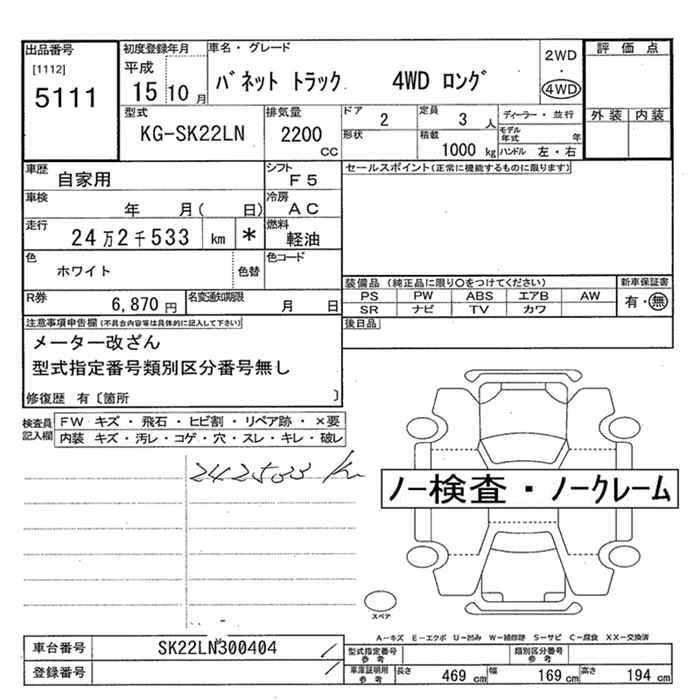 出品番号
[1112]
5111
初度登録年月
平成
15 10 月
車名・グレード
バネット トラック 4WD ロング
2WD
・
4WD
評価点
外装 内装
型式
KG-SK22LN
排気量
2200
CC
ドア
2
定員
3 人
ディーラー・並行
形状
積載
1000 kg
モデル年式 年
ハンドル 左・右
車歴
自家用
シフト
F5
セールスポイント(正常に機能するものに限ります)
車検
年 月( 日)
冷房
AC
走行
24万2千533 km *
燃料
軽油
色
ホワイト
色替
色コード
装備品(純正品に限り○をつけてください)
新車保証書
PS PW ABS エアB AW
SR ナビ TV カワ
有・無
R券
6,870 円
名変通知期限
月 日
後日品
注意事項申告欄(不具合内容等は具体的に記入して下さい)
メーター改ざん
型式指定番号類別区分番号無し
修復歴 有〔箇所 〕
検査員記入欄
FW キズ・飛石・ヒビ割・リペア跡・×要
内装 キズ・汚レ・コゲ・穴・スレ・キレ・破レ
242533 km
ノー検査・ノークレーム
スペア
A-キズ E-エクボ U-凹み W-補修跡 S-サビ C-腐食 XX-交換済
車台番号
SK22LN300404
型式指定番号
参考
類別区分番号
参考
登録番号
車庫証明用
参考
長さ 469 cm 幅 169 cm 高さ 194 cm